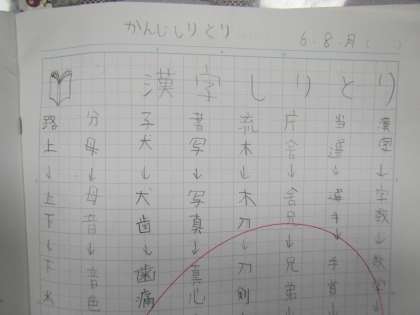 かんじしりとり
6.8.月( )
漢字しりとり
漢字↓字数↓数
当選↓選手↓手首
庁舎↓舎兄↓兄弟
流木↓木刀↓刀剣
書写↓写真↓真心
子犬↓犬歯↓歯痛
分母↓母音↓音色
路上↓上下↓下水